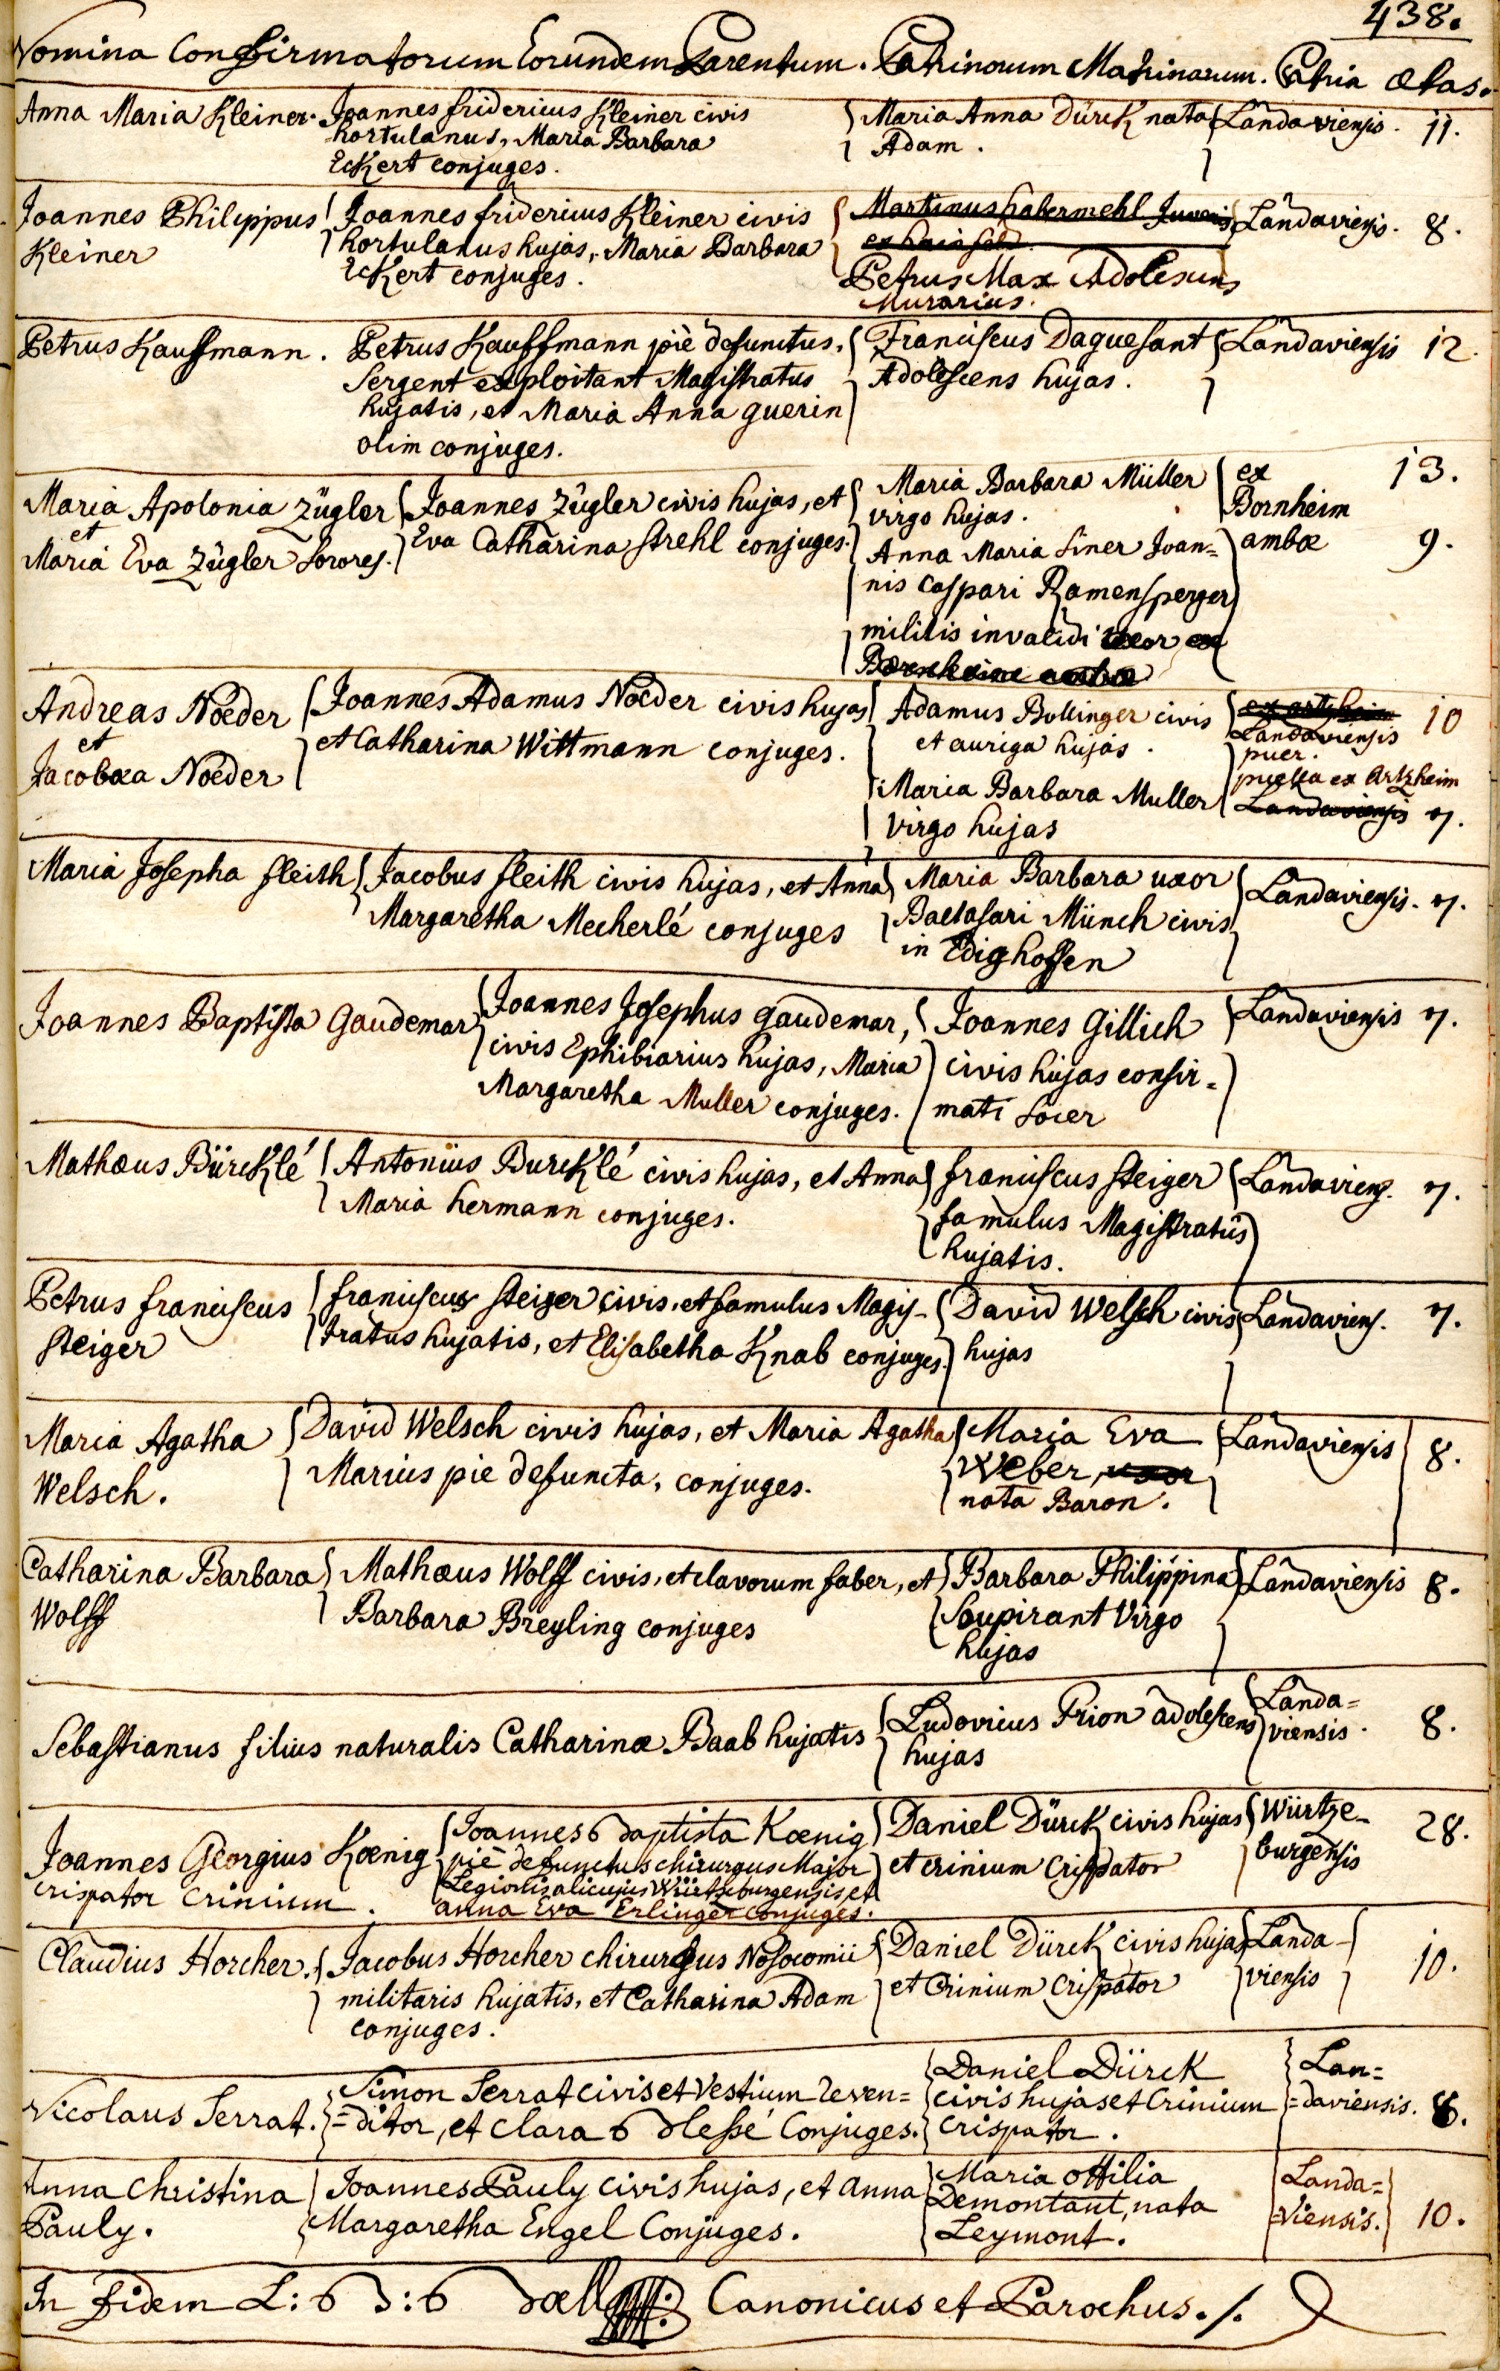 438.
Nomina Confirmatorum Eorundem Parentum. Patrinorum Matrinarum. Patria Ætas.
Anna Maria Kleiner. Joannes fridericus Kleiner civis
hortulanus, Maria Barbara
Eckert conjuges.
Maria Anna Dürck nata
Adam.
Landaviensis. 11.
Joannes Philippus
Kleiner
Joannes fridericus Kleiner civis
hortulanus hujas, Maria Barbara
Eckert conjuges.
Martinus habermehl Juvenis
Petrus Max Adolescens
Murarius.
Landaviensis. 8.
Petrus Kauffmann.
Petrus Kauffmann piè defunctus,
Sergent exploitant Magistratus
hujatis, et Maria Anna guerin
olim conjuges.
Franciscus Daguesant
Adolescens hujas.
Landaviensis 12.
Maria Apolonia Zügler
et
Maria Eva Zügler Sorores.
Joannes Zügler civis hujas, et
Eva Catharina Strehl conjuges.
Maria Barbara Müller
virgo hujas.
Anna Maria Siner Joan=
nis Caspari Ramensperger
militis invalidi uxor ex
Bornheim ambæ
ex
Bornheim
ambæ
13.
9.
Andreas Nöeder
et
Jacobæa Noeder
Joannes Adamus Noeder civis hujas
et Catharina Wittmann conjuges.
Adamus Bollinger civis
et auriga hujas.
Maria Barbara Muller
virgo hujas
ex artzheim
Landaviensis
puer.
puella ex Artzheim
Landaviensis
10
7.
Maria Josepha fleith
Jacobus fleith civis hujas, et Anna
Margaretha Mecherlé conjuges
Maria Barbara uxor
Baltasari Münch civis
in Edighoffen
Landaviensis. 7.
Joannes Baptista Gaudemar
Joannes Josephus gaudemar,
civis Ephibiarius hujas, Maria
Margaretha Muller conjuges.
Joannes Gillich
civis hujas confir=
mati Socer
Landaviensis 7.
Mathæus Bürcklé
Antonius Burcklé civis hujas, et Anna
Maria hermann conjuges.
franciscus Steiger
famulus Magistratûs
hujatis.
Landaviens. 7.
Petrus franciscus
Steiger
franciscus Steiger civis, et famulus Magis-
tratus hujatis, et Elisabetha Knab conjuges.
David Welsch civis
hujas
Landaviens. 7.
Maria Agatha
Welsch.
David Welsch civis hujas, et Maria Agatha
Marius pie defuncta, conjuges.
Maria Eva
Weber, uxor
nata Baron.
Landaviensis 8.
Catharina Barbara
Wolff
Mathæus Wolff civis, et clavorum faber, et
Barbara Breyling conjuges
Barbara Philippina
Soupirant Virgo
hujas
Landaviensis 8.
Sebastianus filius naturalis Catharinæ Baab hujatis
Ludovicus Frion adolescens
hujas
Landa=
viensis. 8.
Joannes Georgius Kœnig
crispator crinium.
Joannes baptista Kœnig
piè defunctus chirurgus Major
Legionis alicujus Würtzburgensis et
anna Eva Erlinger conjuges.
Daniel Dürck civis hujas
et crinium Crispator
Würtze-
burgensis
28.
Claudius Horcher.
Jacobus Horcher chirurgus Nosocomii
militaris hujatis, et Catharina Adam
conjuges.
Daniel Dürck civis hujas
et Crinium Crispator
Landa-
viensis
10.
Nicolaus Serrat.
Simon Serrat civis et Vestium Reven=
=ditor, et Clara blessé Conjuges.
Daniel Dürck
civis hujas et Crinium
Crispator.
Lan=
=daviensis. 8.
Anna Christina
Pauly.
Joannes Pauly civis hujas, et Anna
Margaretha Engel Conjuges.
Maria Ottilia
Demontant, nata
Leymont.
Landa=
=Viensis. 10.
In fidem L: Canonicus et Parochus./.